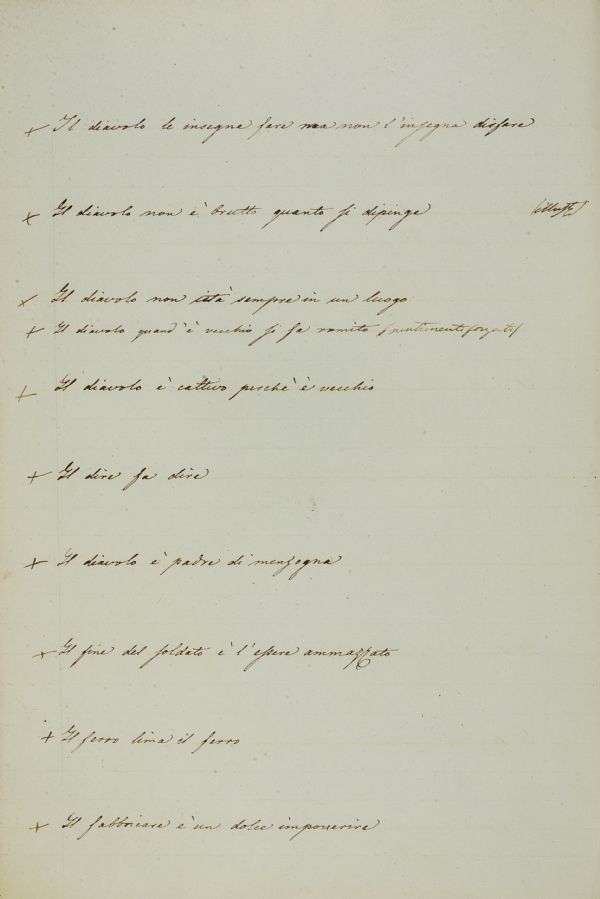 + Il diavolo le insegna fare ma non l'insegna disfare
+ Il diavolo non è brutto quanto si dipinge
+ Il diavolo non istà sempre in un luogo
+ Il diavolo quand'è vecchio si fa romito
+ Il diavolo è cattivo perchè è vecchio
+ Il dire fa dire
+ Il diavolo è padre di menzogna
+ Il fine del soldato è l'essere ammazzato
+ Il ferro lima il ferro
+ Il fabbricare è un dolce impoverire